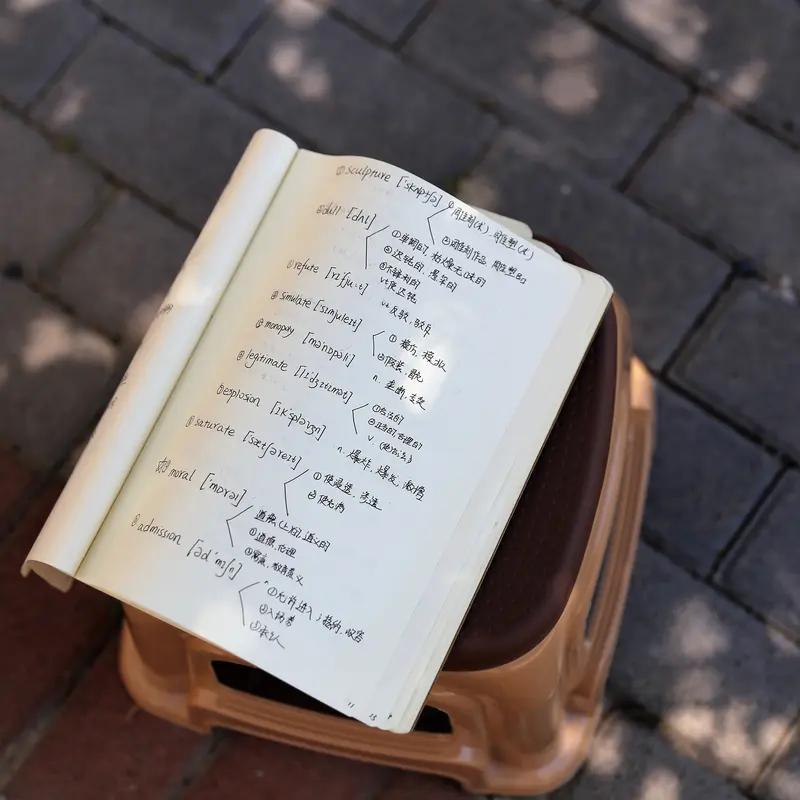 ① sculpture ['skʌlptʃə] ① 雕刻(术) 雕塑(术)
② 雕刻作品 雕塑品
dull [dʌl] ① 单调的, 枯燥无味的
② 迟钝的, 愚笨的
③ 不锋利的
vt 使迟钝
refute [rɪ'fju:t] vt 反驳, 驳斥
④ simulate ['sɪmjuleɪt] ① 模仿, 模拟
② 假装, 冒充
monopoly [mə'nɒpəli] n. 垄断, 专卖
legitimate [lɪ'dʒɪtɪmət] ① 合法的
② 正当的, 合理的
v.
explosion [ɪk'spləʊʒn] n. 爆炸, 爆发, 激增
saturate ['sætʃəreɪt] ① 使湿透, 浸透
② 使充满
moral ['mɒrəl] 道德(上)的, 道义的
① 道德, 伦理
② 寓意, 教育意义
admission [əd'mɪʃn] n ① 允许进入; 接纳, 收容
② 入场费
③ 承认